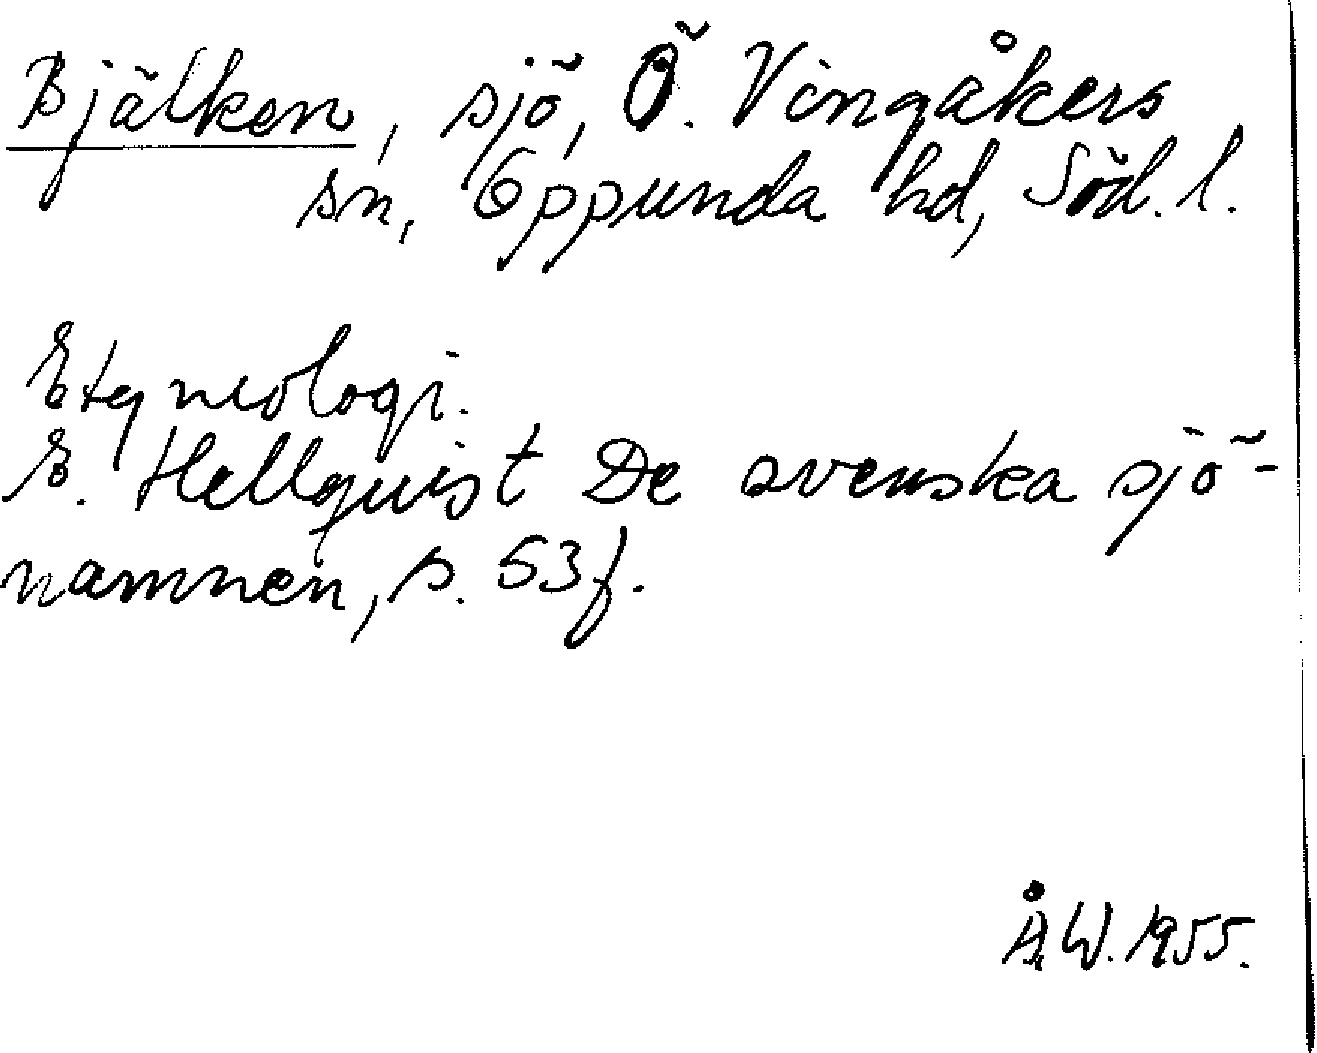 Bjälken, sjö, Ö. Vingåkers
sn, Oppunda hd, Söd. l.
Etymologi.
E. Hellquist De svenska sjö-
namnen, s. 53f.
Å.W. 1955.